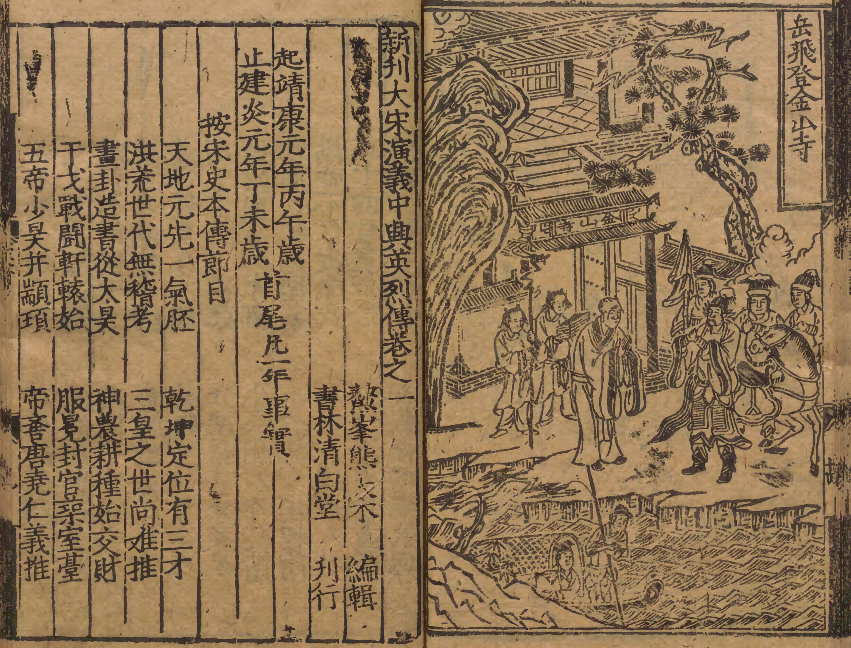 岳飛登金山寺
金山寺
新刊大宋演義中興英烈傳卷之一
鰲峯熊大木 編輯
書林清白堂 刊行
起靖康元年丙午歲
止建炎元年丁未歲
首尾凡一年事實
按宋史本傳節目
天地元先一氣胚 乾坤定位有三才
洪荒世代無稽考 三皇之世尚难推
畫封造書從太昊 神農耕種始交財
干戈戰鬪軒轅始 服冕封官築室臺
五帝少昊并顓頊 帝嚳唐堯仁義推